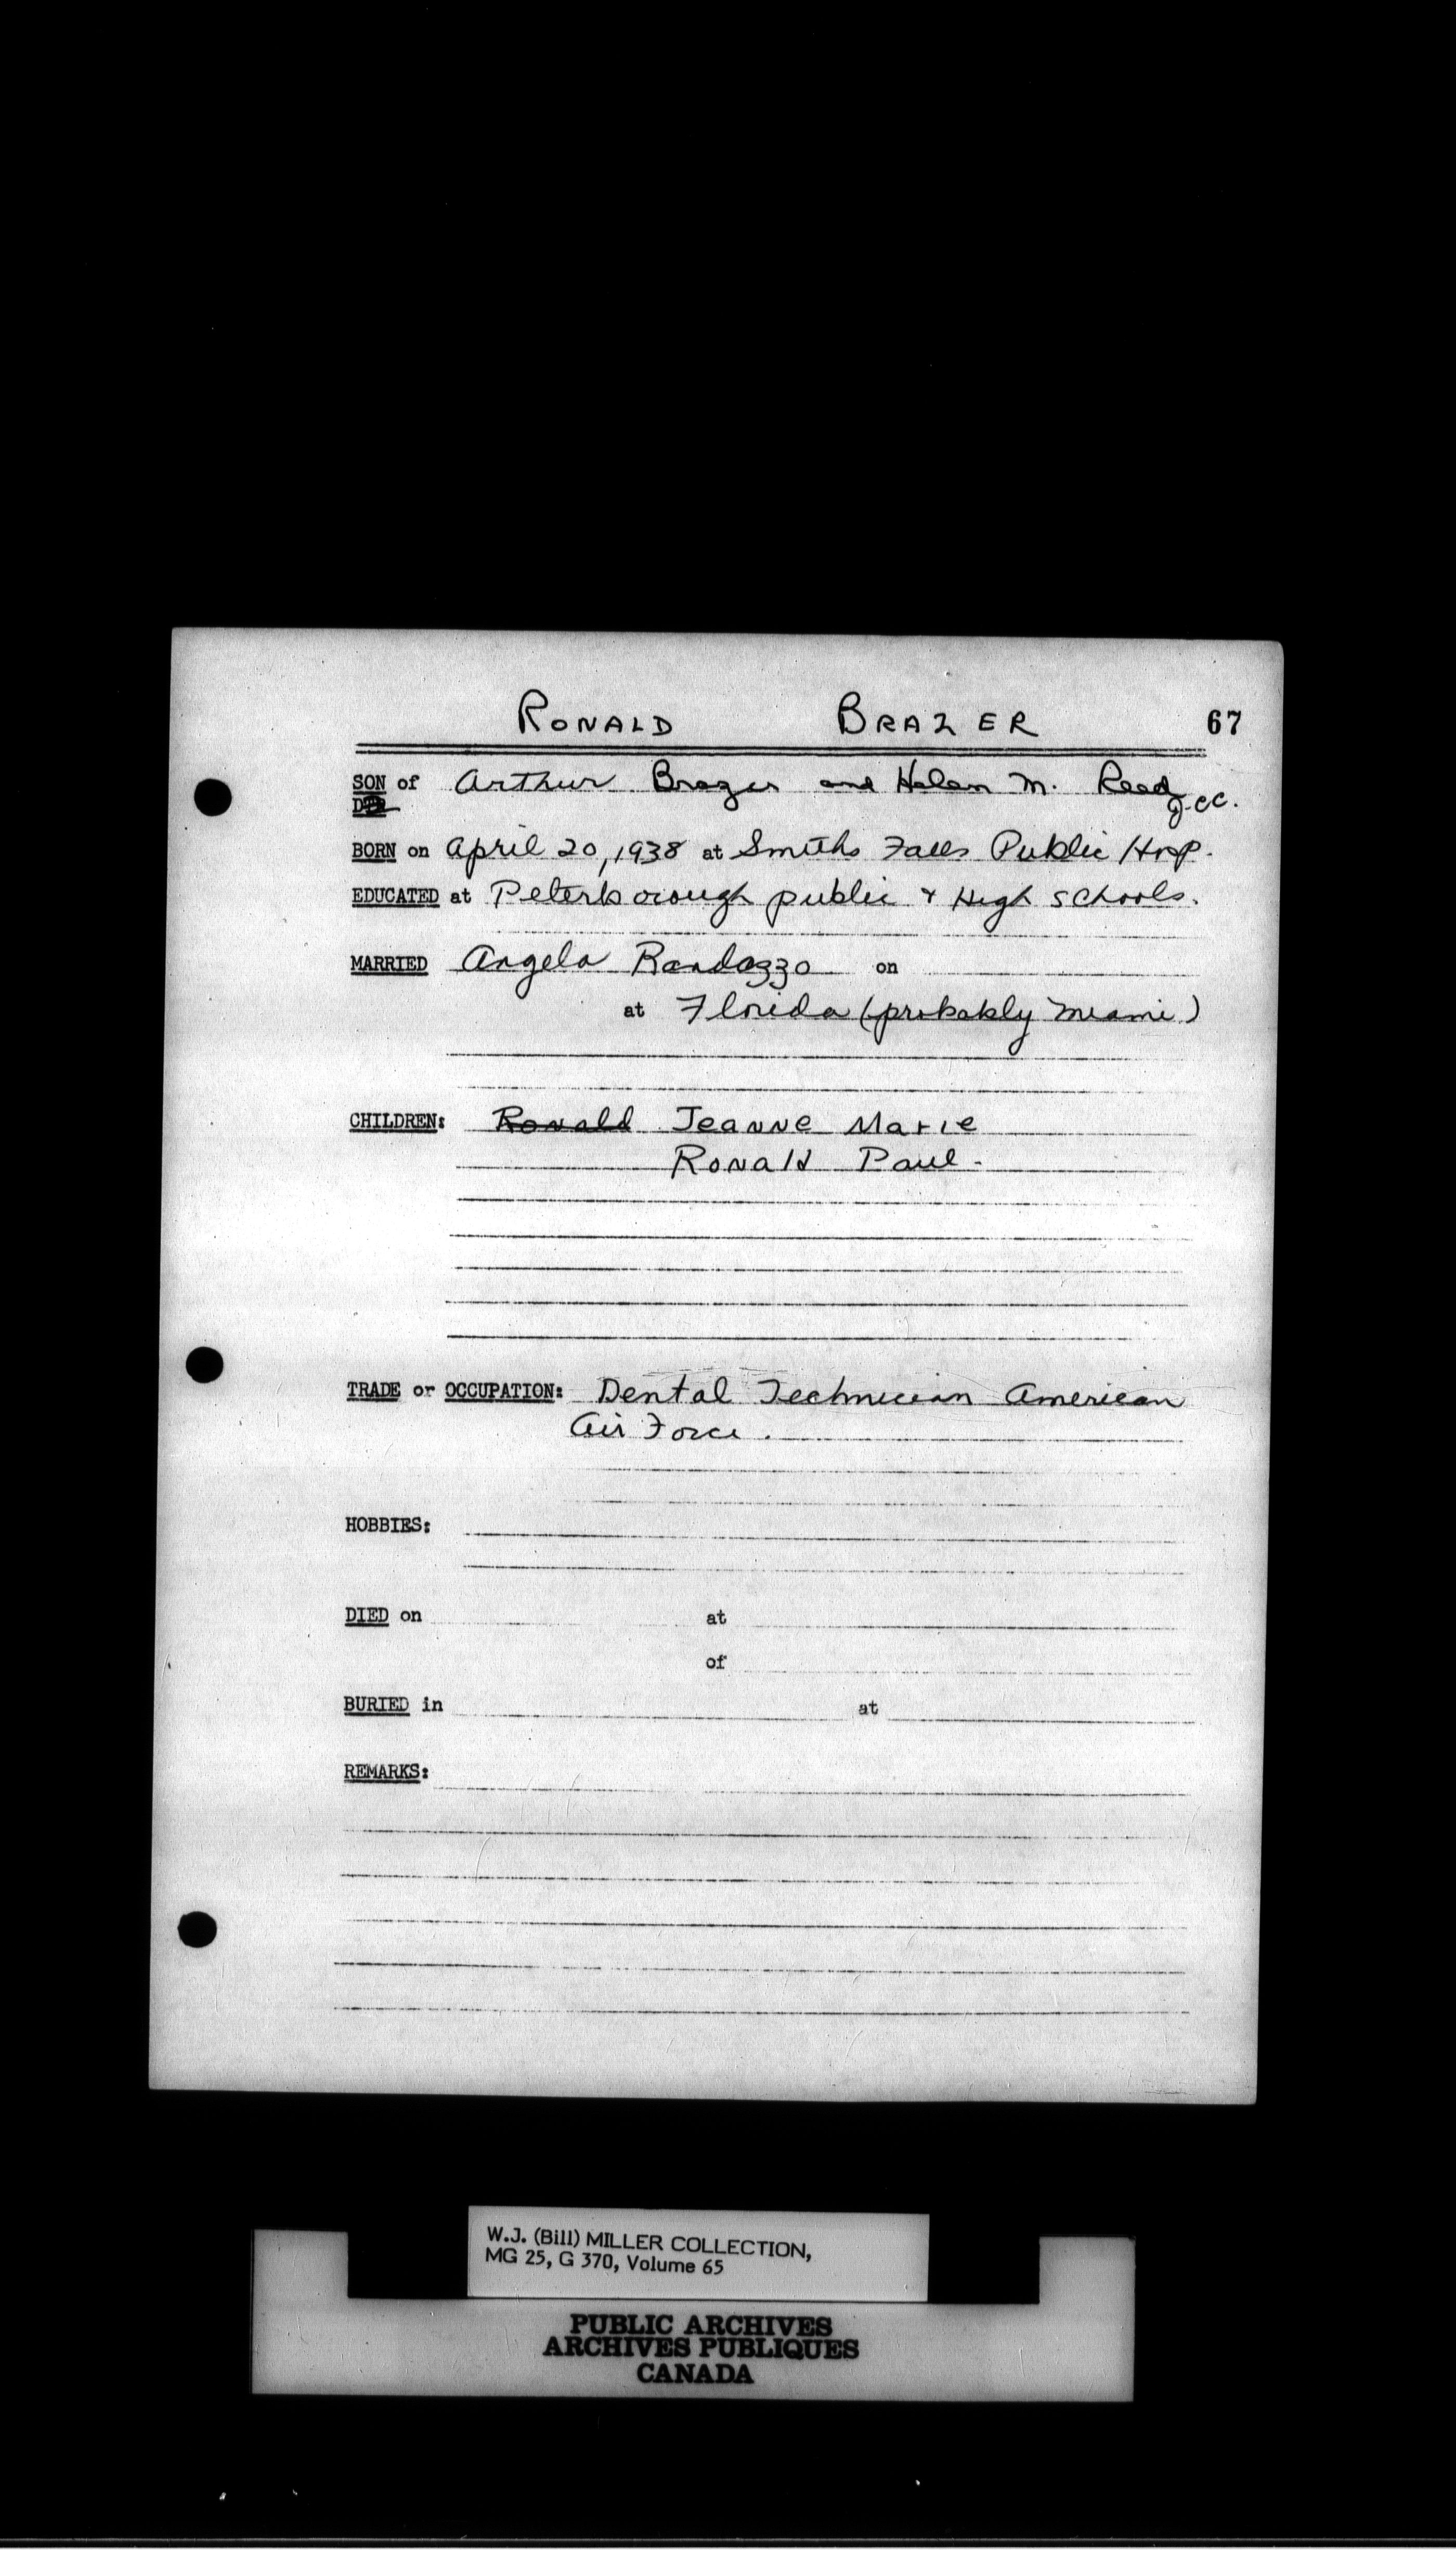 RONALD BRAZER 67
SON of Arthur Brazer and Helen M. Reed
J.CC.
BORN on April 20, 1938 at Smiths Falls Public Hosp.
EDUCATED at Peterborough public & High schools.
MARRIED Angela Randazzo on
at Florida (probably Miami)
CHILDREN: Ronald Jeanne Marie
Ronald Paul.
TRADE or OCCUPATION: Dental Technician American
Air Force.
HOBBIES:
DIED on at
of
BURIED in at
REMARKS:
W.J. (Bill) MILLER COLLECTION,
MG 25, G 370, Volume 65
PUBLIC ARCHIVES
ARCHIVES PUBLIQUES
CANADA